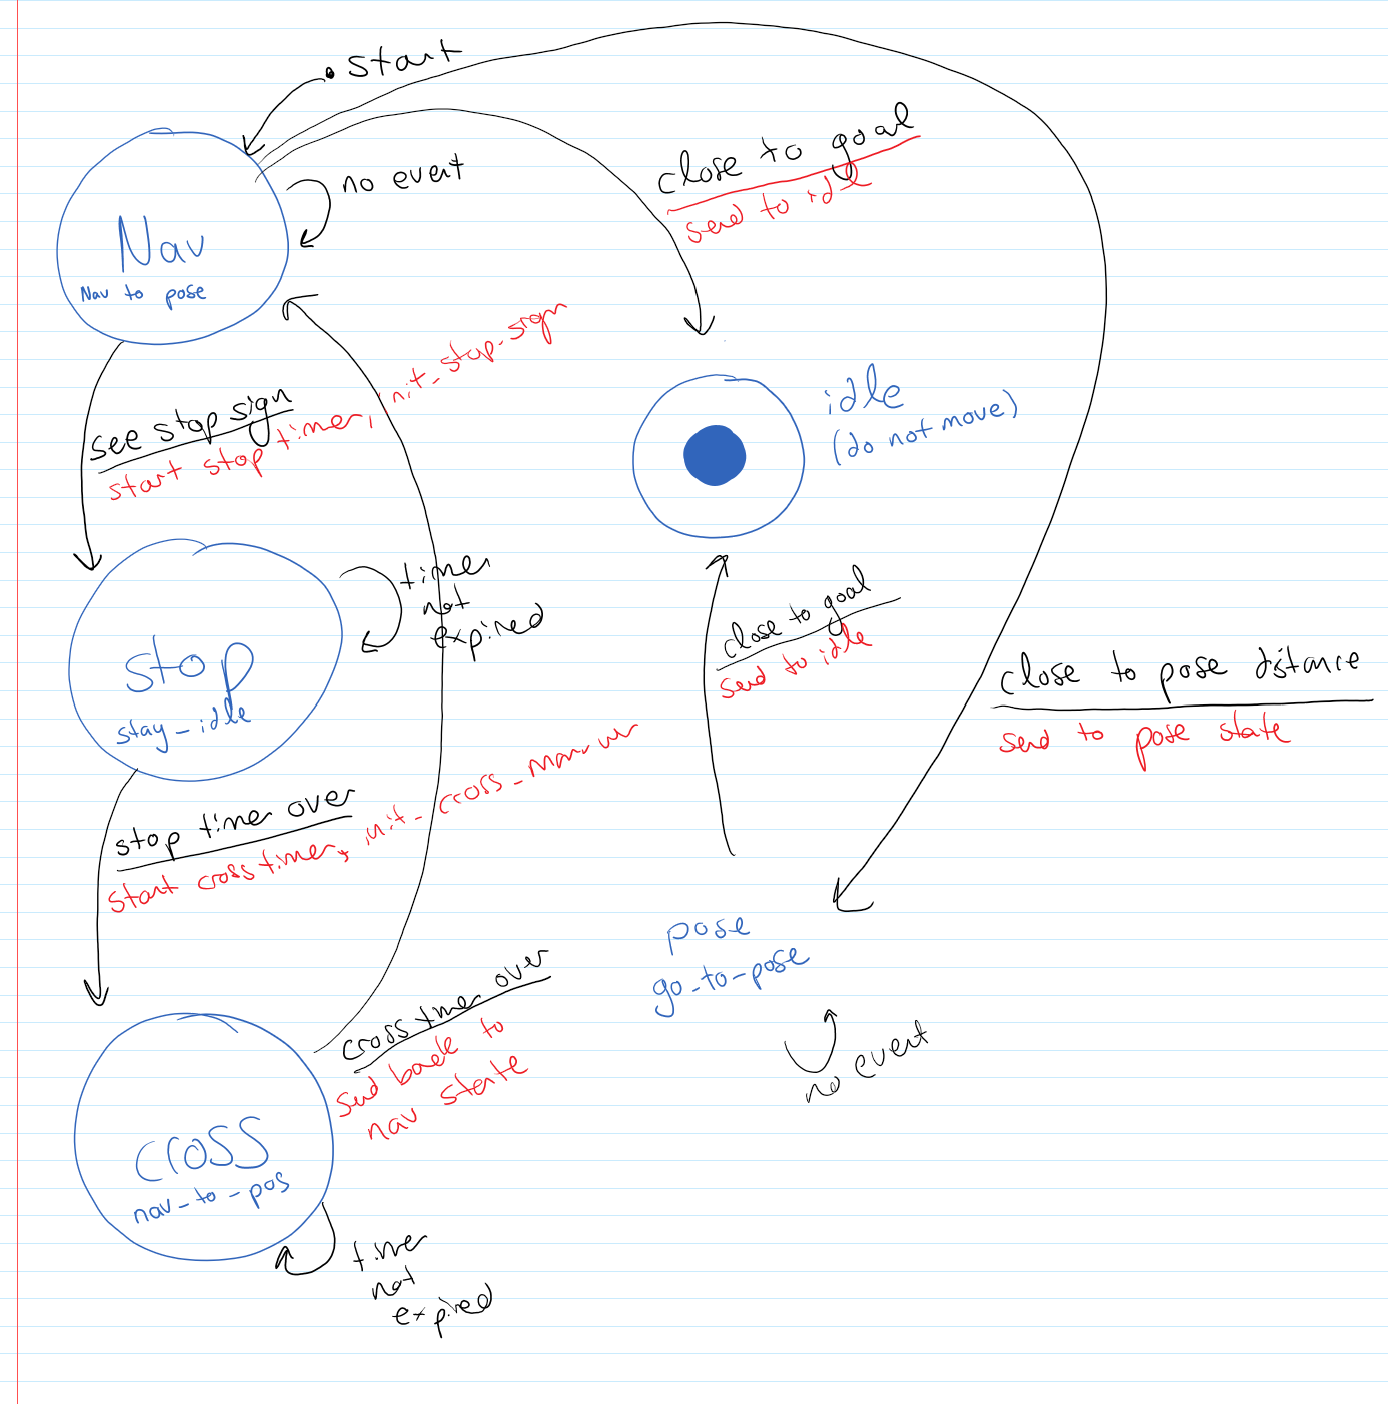 start
no event
Nav
Nav to pose
close to goal
send to idle
see stop sign
start stop timer, init_stop_sign
idle
(do not move)
timer
not
expired
stop
stay_idle
close to goal
send to idle
close to pose distance
send to pose state
stop timer over
start cross timer, init_cross_
pose
go_to_pose
no event
cross timer over
send back to
nav state
cross
nav_to_pos
timer
not
expired